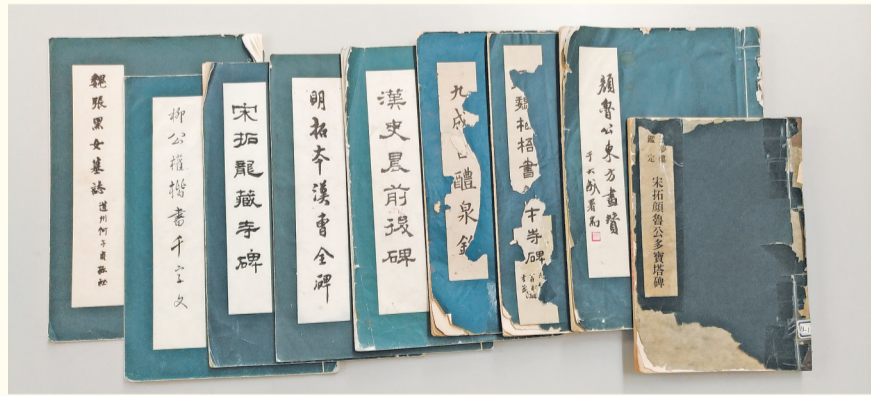 魏張黑女墓誌
道州何子貞
柳公權楷書千字文
宋拓龍藏寺碑
明拓本漢曹全碑
漢史晨前後碑
九成
醴泉銘
魏松梧書
本寺碑
顏魯公東方畫贊
于大成署耑
鑑定
宋拓顏魯公多寶塔碑